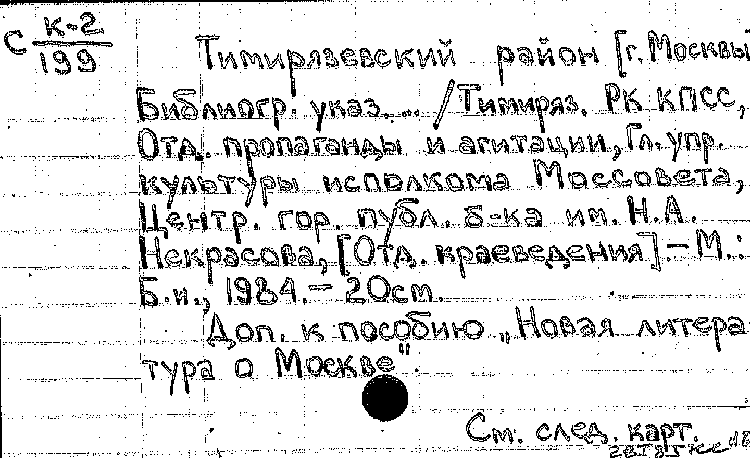 С К-2
199
Тимирязевский район [г. Москвы
Библиогр. указ. ... / Тимиряз. РК КПСС,
Отд. пропаганды и агитации, Гл. упр.
культуры исполкома Моссовета,
Центр. гор. публ. б-ка им. Н.А.
Некрасова, [Отд. краеведения]. - М.:
Б.и., 1984. - 20см.
Доп. к пособию „Новая литера-
тура о Москве".
См. след. карт.